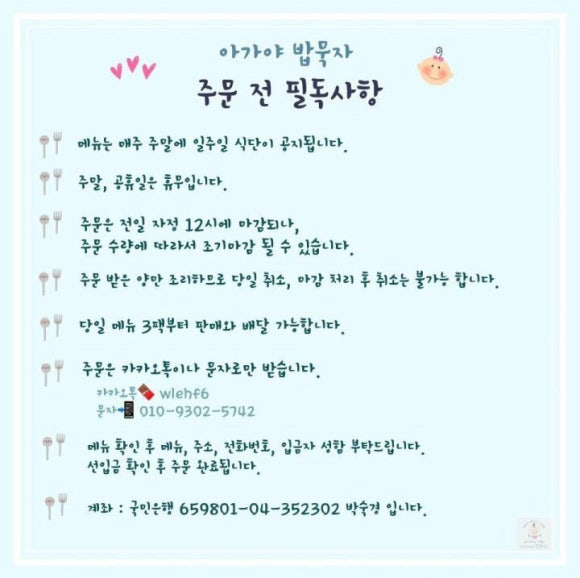 아가야 밥묵자
주문 전 필독사항
메뉴는 매주 주말에 일주일 식단이 공지됩니다.
주말, 공휴일은 휴무입니다.
주문은 전일 자정 12시에 마감되나,
주문 수량에 따라서 조기마감 될 수 있습니다.
주문 받은 양만 조리하므로 당일 취소, 마감 처리 후 취소는 불가능 합니다.
당일 메뉴 3팩부터 판매와 배달 가능합니다.
주문은 카카오톡이나 문자로만 받습니다.
카카오톡🍫 wlehf6
문자📲 010-9302-5742
메뉴 확인 후 메뉴, 주소, 전화번호, 입금자 성함 부탁드립니다.
선입금 확인 후 주문 완료됩니다.
계좌 : 국민은행 659801-04-352302 박숙경 입니다.